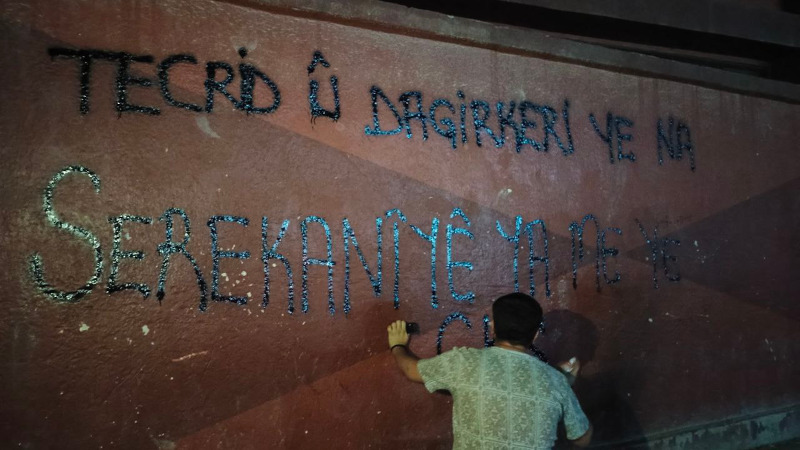 TECRİD Û DAGİRKERİ YE NA
SEREKANÎYÊ YA ME YE